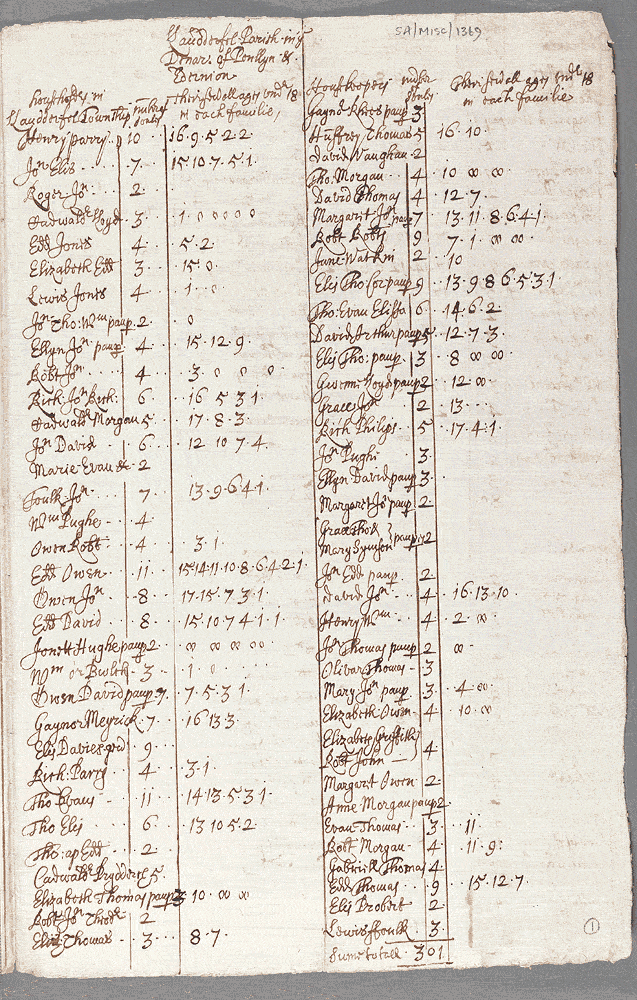 SA/MISC/1369
Llandderfel Parish in ye
Denari of Penllyn &
Estimion
housholds in
Llandderfel Township
number
soules
their sevrall ages undr 18
in each familie,
Henry Parry 10 16.9.5.2.2
Jon Elis 7 15 10 7.5.1
Roger Jon 2
Cadwaldr lloyd 3 1 0 0 0 0 0
Edd Jones 4 5.2
Elizabeth Edd 3 15 0
Lewis Jones 4 1 0
Jon Tho: Wm paup. 2 0
Ellyn Jon paup. 4 15.12.9
Robt Jon 4 3 0 0 0
Rich: Jon Rich: 6 16 5 3 1
Cadwaldr Morgan 5 17.8.3
Jon David 6 12 10 7 4
Marie Evan 2
Foulk Jon 7 13.9.6.4.1
Wm Pughe 4
Owen Robt 4 3.1
Edd Owen 11 15.14.11.10.8.6.4.2.1
Owen Jon 8 17.15.7.3.1
Edd David 8 15.10 7 4 1.1
Jonett Hughe paup 2 00 00 00 00
Wm or Bwlch 3 1 0
Owen David paup 7 7.5.3.1
Gaynor Meyrick 7 16 13 3
Elis Davies 9
Rich: Parry 4 3.1
Tho Evans 11 14 13.5.3 1
Tho Elis 6 13 10 5.2
Tho: ap Edd 2
Cadwaldr Prydderch 5
Elizabeth Thomas paup 3 10 00 00
Robt Jon 2
Elis Thomas 3 8.7
Houskeepers
number
soules
their sevrall ages undr 18
in each familie
Gaynor Rhees paup 3
Huffrey Thomas 5 16.10
David Vaughan 2
Tho: Morgan 4 10 00 00
David Thomas 4 12.7
Margaret Jon paup 7 13.11.8.6.4.1
Robt Robts 9 7.1 00 00
Jane Watkin 2 10
Elis Tho: paup 9 13.9.8.6.5.3.1
Tho: Evan Elissa 6 14.6.2
David Arthur paup 5 12.7.3
Elis Tho: paup 3 8 00 00
Gwenn lloyd paup 2 12 00
Grace Jon 2 13
Rich Philips 5 17.4.1
Jon Pughe 3
Ellyn David paup 3
Margaret Jon paup 2
Grace Tho &
Mary Symson } paup 2
Jon Edd paup 2
David Jon 4 16.13.10
Henry Wm 4 2 00
Jon Thomas paup 2 00
Olivar Thomas 3
Mary Jon paup 3 4 00
Elizabeth Owen 4 10 00
Elizabeth Griffith }
Robt John 4
Margaret Owen 2
Anne Morgan paup 2
Evan Thomas 3 11
Robt Morgan 4 11 9
Gabriell Thomas 4
Edd Thomas 9 15.12.7
Elis Probert 2
Lewis ffoulk 3
Sume totall 301
1